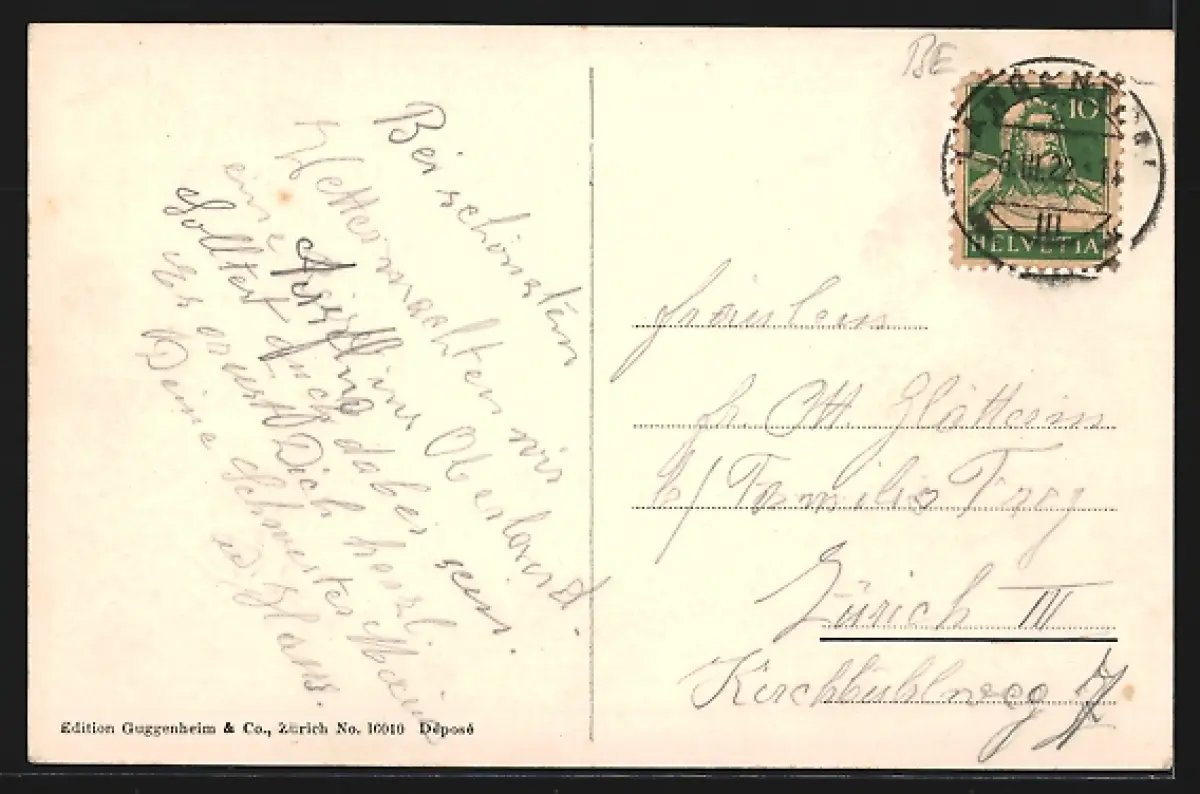 BE
10
HELVETIA
LANGENTHAL
III.22
III
Bei schönstem
Wetter machten wir
eine Ausflug ins Oberland.
Solltest auch dabei sein.
Es grüsst Dich herzl.
Deine Schwester Marie
u. Hans.
Fräulein
Familie Frey
Zürich III
Kirchbühlweg 7
Edition Guggenheim & Co., Zürich No. 16010 Déposé